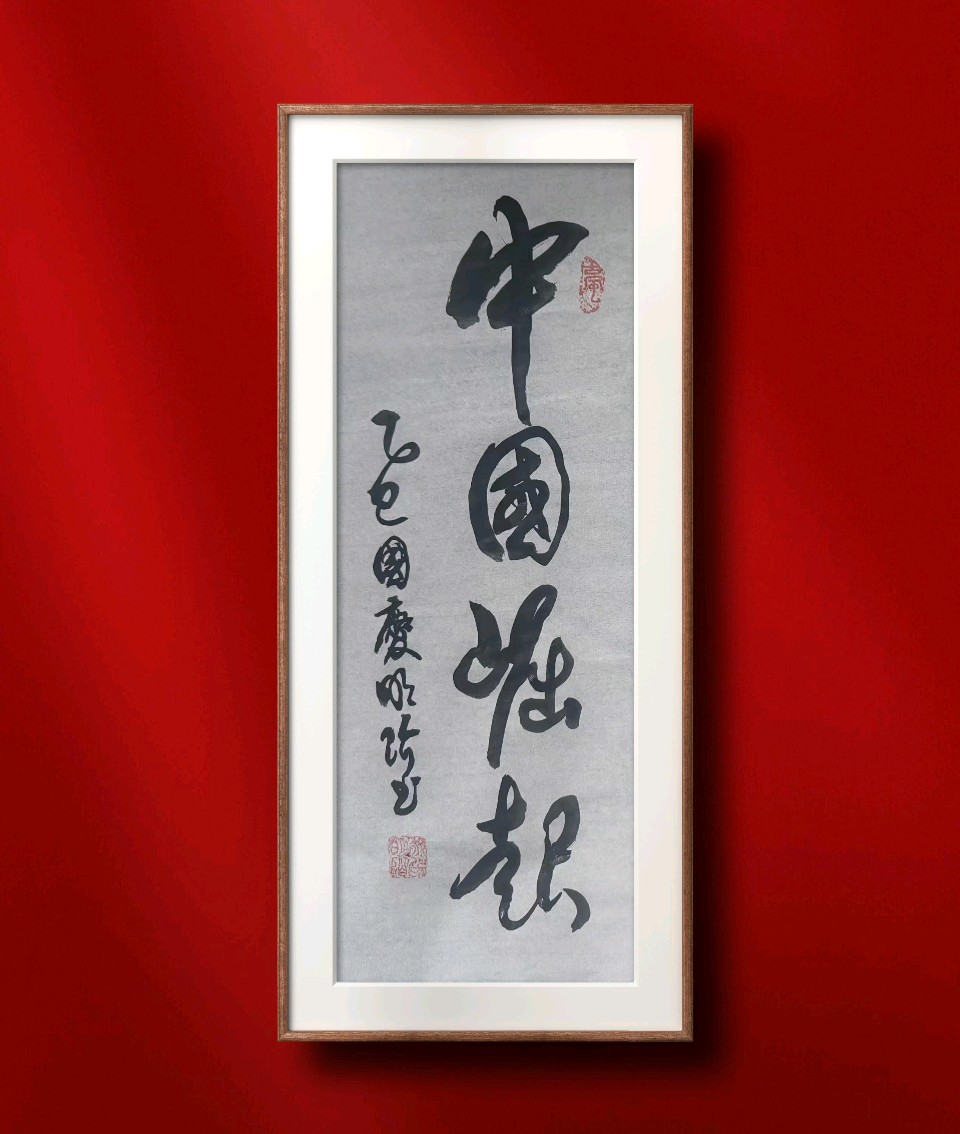 中國崛起
乙巳國慶明珍书